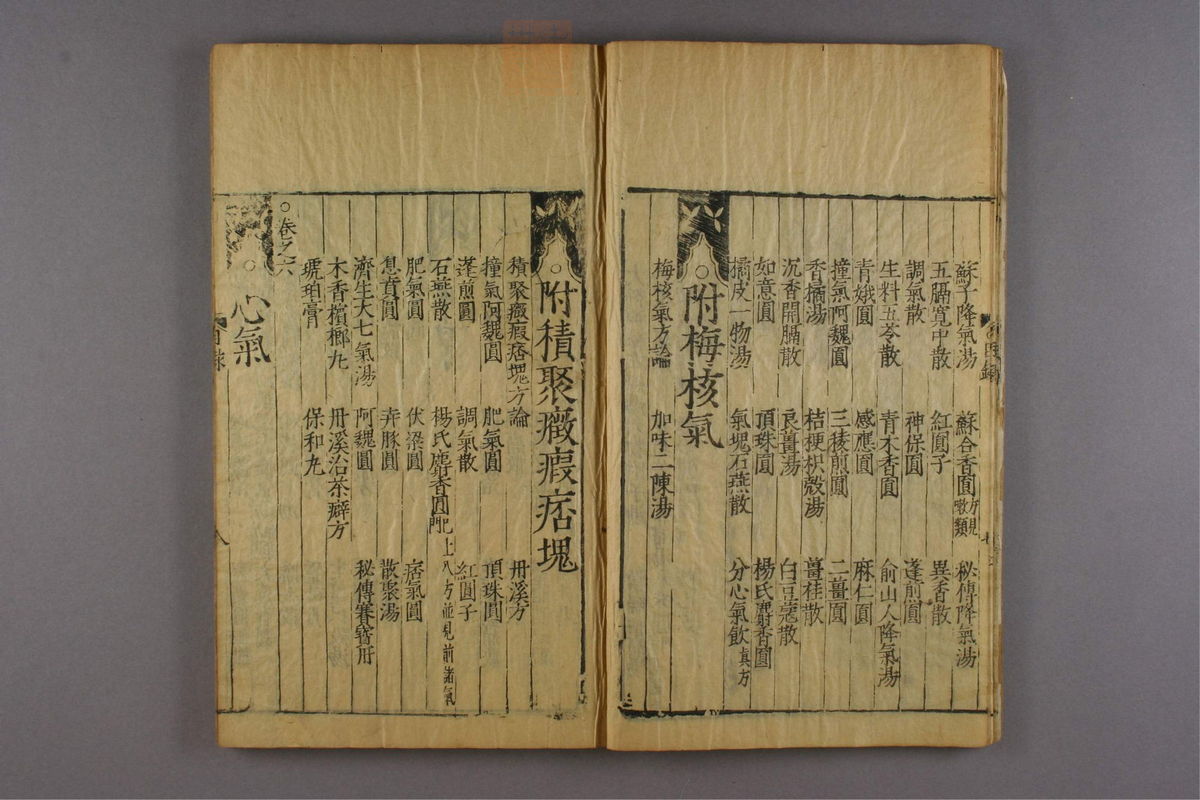 蘇子降氣湯 蘇合香圓方見嗽類 秘傳降氣湯
五膈寬中散 紅圓子 異香散
調氣散 神保圓 蓬煎圓
生料五苓散 青木香圓 俞山人降氣湯
青娥圓 感應圓 麻仁圓
撞氣阿魏圓 三稜煎圓 二薑圓
香橘湯 桔梗枳殼湯 薑桂散
沉香開膈散 良薑湯 白豆蔻散
如意圓 頂珠圓 楊氏麝香圓
橘皮一物湯 氣塊石燕散 分心氣飲真方
附梅核氣
梅核氣方論 加味二陳湯
附積聚癥瘕痞塊
積聚癥瘕痞塊方論 丹溪方
撞氣阿魏圓 肥氣圓 頂珠圓
蓬煎圓 調氣散 紅圓子
石燕散 楊氏麝香圓 已上八方並見前諸氣
肥氣圓 伏梁圓 痞氣圓
息賁圓 奔豚圓 散聚湯
濟生大七氣湯 阿魏圓 秘傳賽寶丹
木香檳榔丸 丹溪治茶癖方
琥珀膏 保和丸
卷之六
心氣
目錄 八